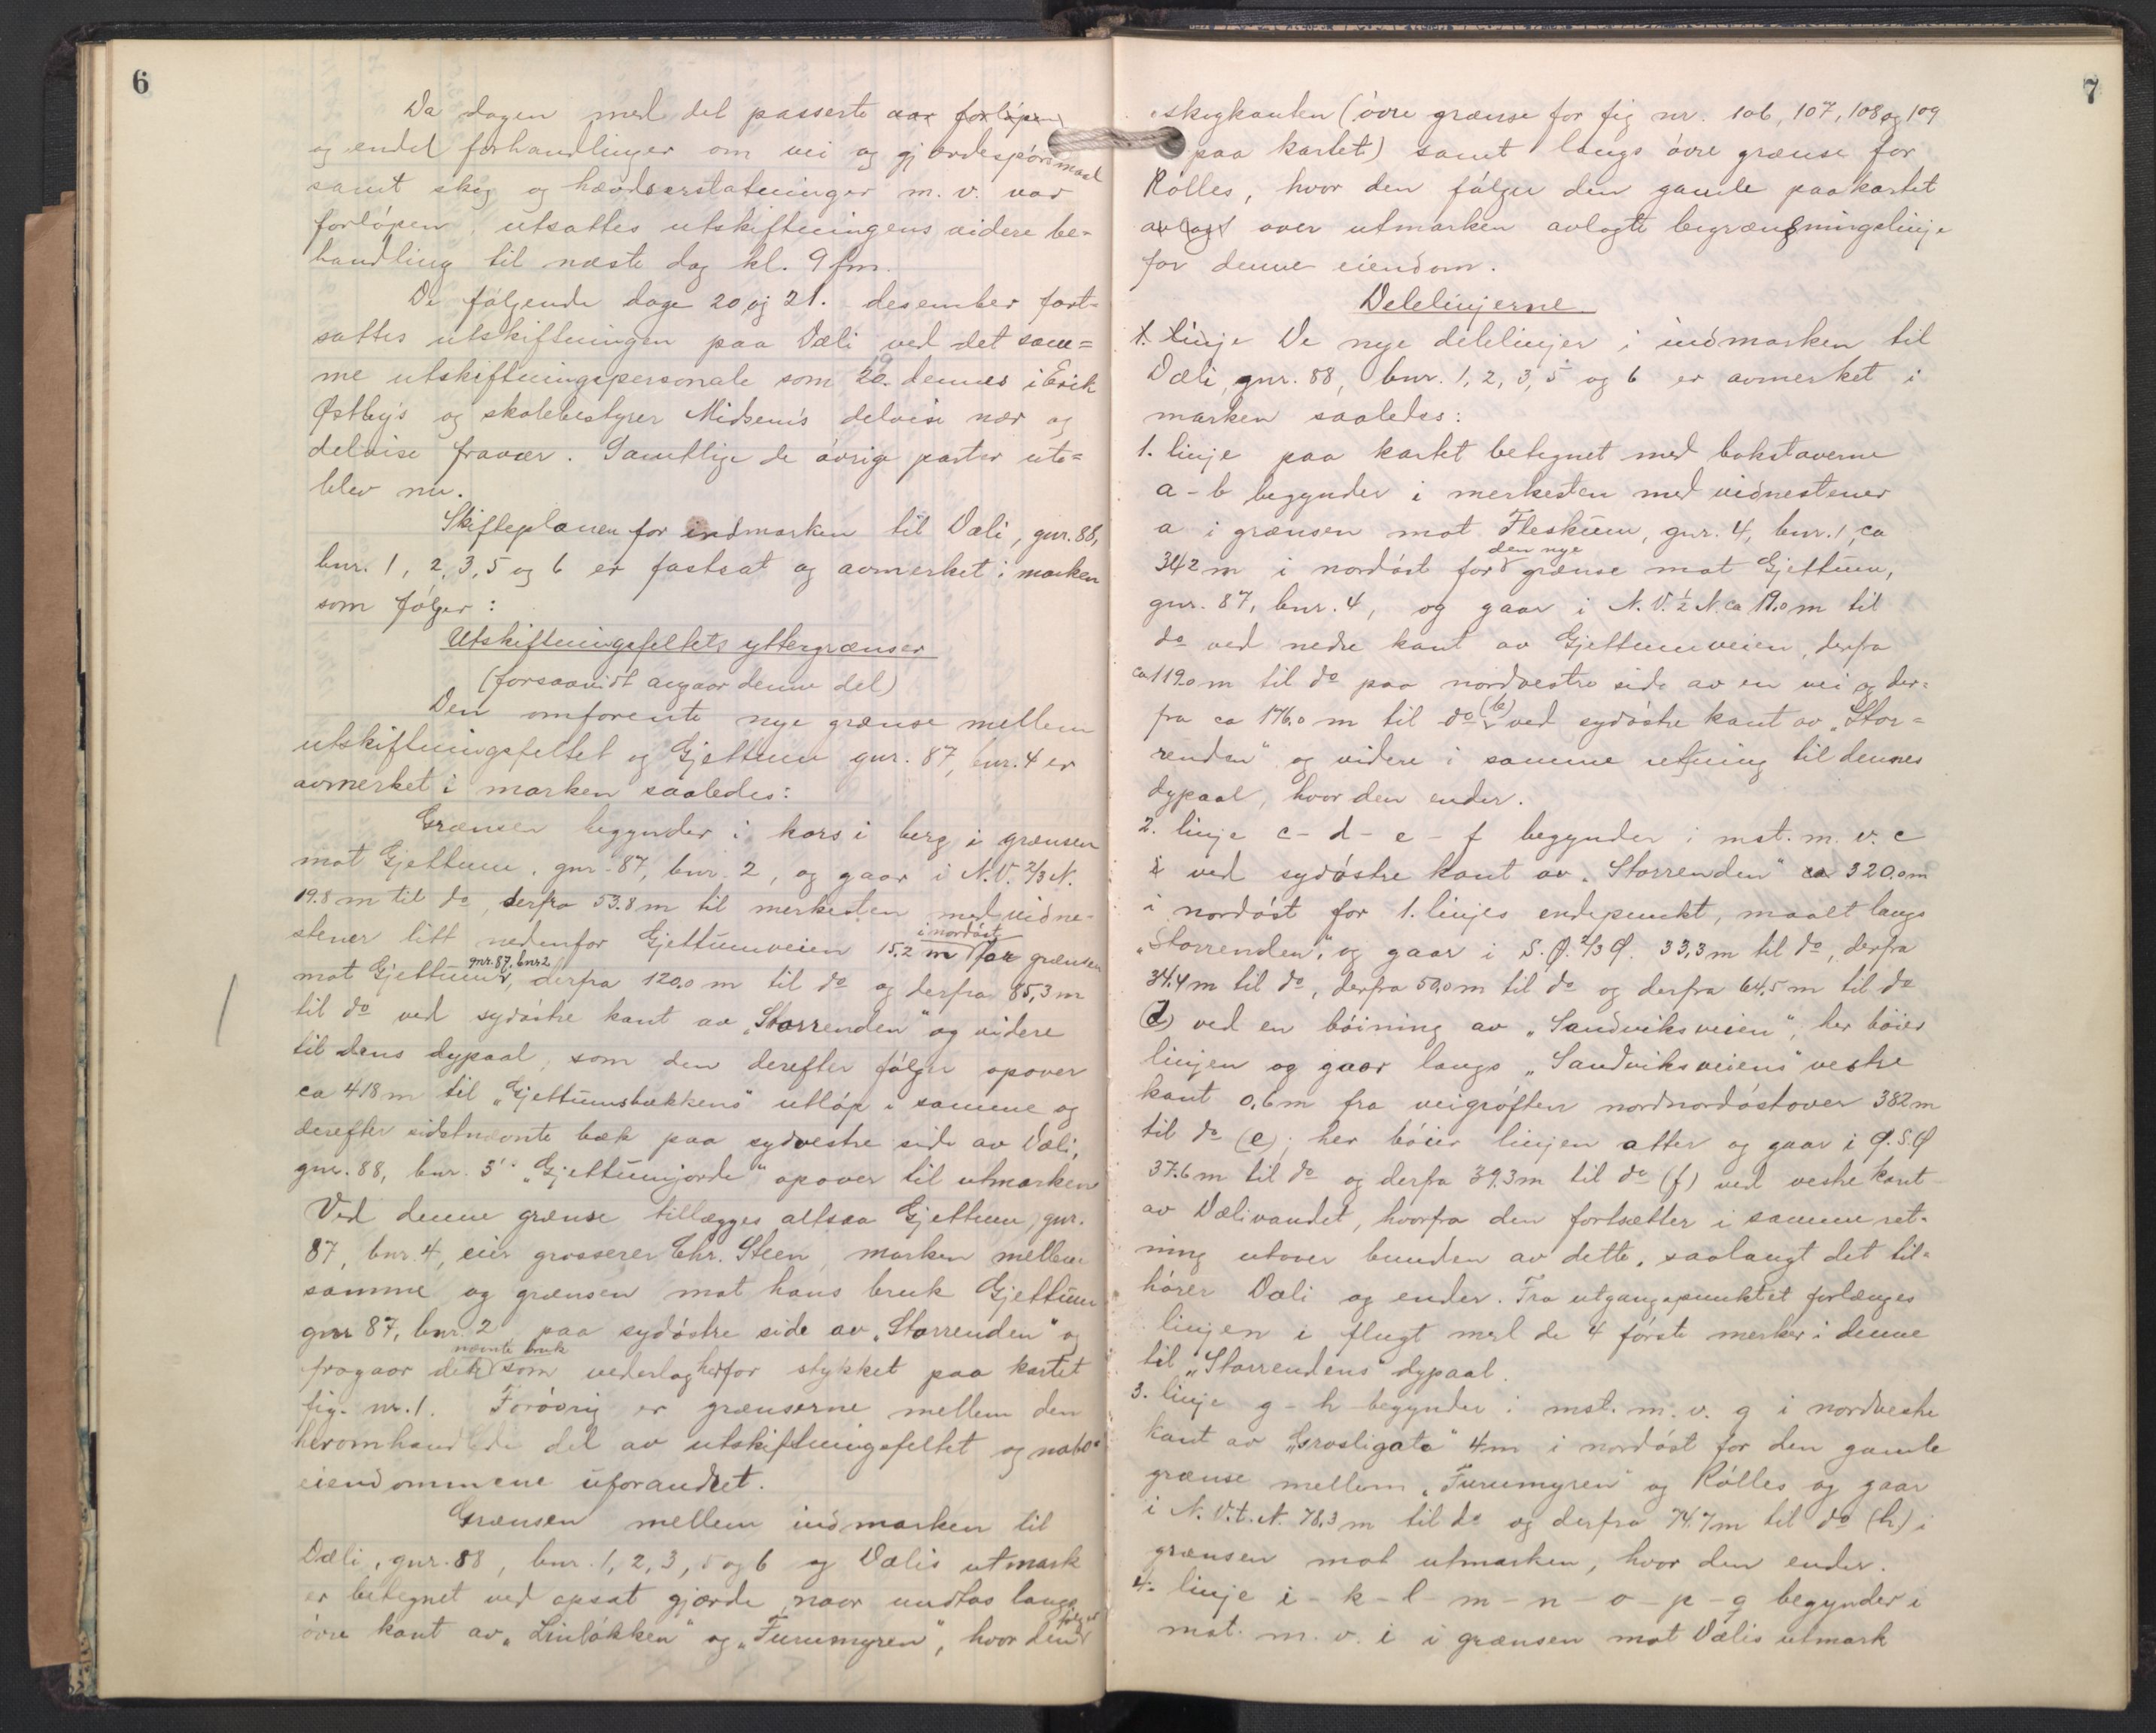 6
Da dagen med det passerte aar forløpen
og endel forhandlinger om vei og gjærdespørsmaal
samt skog og hævdserstatninger m. v. var
forløpen, utsattes utskiftningens videre be-
handling til næste dag kl. 9 fm.
De følgende dage 20 og 21. desember fort-
sattes utskiftningen paa Dæli ved det sam=
me utskiftningspersonale som 19. dennes i Erik
Østby's og skolebestyrer Midsem's delvise nær og
delvise fravær. Samtlige de øvrige parter ute=
blev nu.
Skifteplanen for indmarken til Dæli, gnr. 88,
bnr. 1, 2, 3, 5 og 6 er fastsat og avmerket i marken
som følger:
Utskiftningsfeltets yttergrænser
(forsaavidt angaar denne del)
Den omforente nye grænse mellem
utskiftningsfeltet og Gjettum gnr. 87, bnr. 4 er
avmerket i marken saaledes:
Grænsen begynder i kors i berg i grænsen
mot Gjettum, gnr. 87, bnr. 2, og gaar i N.V. 2/3 N.
19.8 m til do, derfra 53.8 m til merkesten med vidne-
stener litt nedenfor Gjettumveien 15,2 m i nordøst for grænsen
mot Gjettum gnr. 87, bnr 2, derfra 120,0 m til do og derfra 85,3 m
til do ved sydøstre kant av „Storrenden" og videre
til dens dypaal, som den derefter følger opover
ca 418 m til „Gjettumsbækkens" utløp i samme og
derefter sidstnævnte bæk paa sydvestre side av Dæli,
gnr. 88, bnr. 3's „Gjettumjorde" opover til utmarken
Ved denne grænse tillægges altsaa Gjettum, gnr.
87, bnr. 4, eier grosserer Chr. Steen, marken mellem
samme og grænsen mot hans bruk Gjettum
gnr 87, bnr. 2 paa sydøstre side av „Storrenden" og
fragaar det nævnte bruk som vederlag herfor stykket paa kartet
fig. nr. 1. Forøvrig er grænserne mellem den
heromhandlede del av utskiftningsfeltet og nabo=
eiendommene uforandret.
Grænsen mellem indmarken til
Dæli, gnr. 88, bnr. 1, 2, 3, 5 og 6 og Dælis utmark
er betegnet ved opsat gjærde, naar undtas langs
øvre kant av „Linløkken" og „Furumyren", hvor den følger
7
skogkanten (øvre grænse for fig nr. 106, 107, 108 og 109
paa kartet) samt langs øvre grænse for
Rølles, hvor den følger den gamle paa kartet
avlagt over utmarken avlagte begrænsningslinje
for denne eiendom.
Delelinjerne
1. linje De nye delelinjer i indmarken til
Dæli, gnr. 88, bnr. 1, 2, 3, 5 og 6 er avmerket i
marken saaledes:
1. linje paa kartet betegnet med bokstaverne
a - b begynder i merkesten med vidnestener
a i grænsen mot Fleskum, gnr. 4, bnr. 1, ca
342 m i nordøst for den nye grænse mot Gjettum,
gnr. 87, bnr. 4, og gaar i N.V. 1/2 N. ca 19,0 m til
do ved nedre kant av Gjettumveien, derfra
ca 119.0 m til do paa nordvestre side av en vei og der=
fra ca 176.0 m til do (b) ved sydøstre kant av „Stor=
renden" og videre i samme retning til dennes
dypaal, hvor den ender.
2. linje c - d - e - f begynder i mst. m. v. c
i ved sydøstre kant av „Storrenden" ca 320.0 m
i nordøst for 1. linjes endepunkt, maalt langs
„Storrenden", og gaar i S.Ø. 2/3 Ø. 33,3 m til do, derfra
34.4 m til do, derfra 50,0 m til do og derfra 64,5 m til do
(d) ved en bøining av „Sandviksveien", her bøier
linjen og gaar langs „Sandviksveiens" vestre
kant 0,6 m fra veigrøften nordnordøstover 382 m
til do (e); her bøier linjen atter og gaar i Ø.S.Ø
37.6 m til do og derfra 39.3 m til do (f) ved vestre kant
av Dælivandet, hvorfra den fortsætter i samme ret-
ning utover bunden av dette, saalangt det til-
hører Dæli og ender. Fra utgangspunktet forlænges
linjen i flugt med de 4 første merker i denne
til „Storrendens" dypaal.
3. linje g - h begynder i mst. m. v. g i nordvestre
kant av „Grosligata" 4 m i nordøst for den gamle
grænse mellem „Furumyren" og Rølles og gaar
i N.V.t.N. 78,3 m til do og derfra 74.7 m til do (h) i
grænsen mot utmarken, hvor den ender.
4. linje i - k - l - m - n - o - p - q begynder i
mst. m. v. i i grænsen mot Dælis utmark